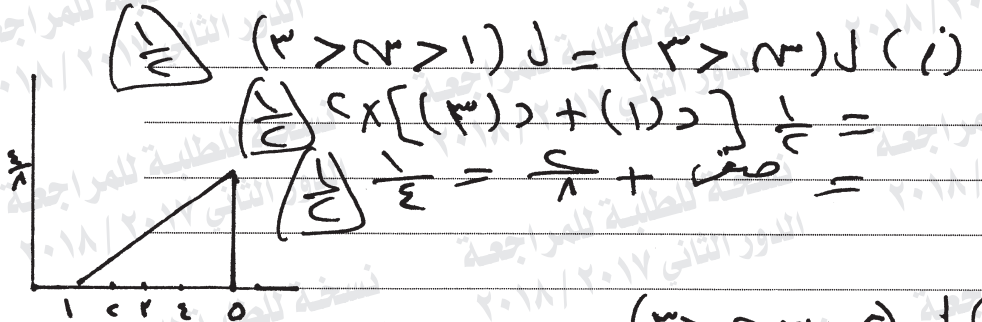 (i) ل(س < ٣) = ل(١ < س < ٣) ١/٢
= ١/٢ [د(١) + د(٣)] × ٢ ١/٢
= صفر + ٢/٨ = ١/٤ ١/٢
٤/٨
١ ٢ ٣ ٤ ٥
نسخة للطلبة للمراجعة
الدور الثاني ٢٠١٧ / ٢٠١٨